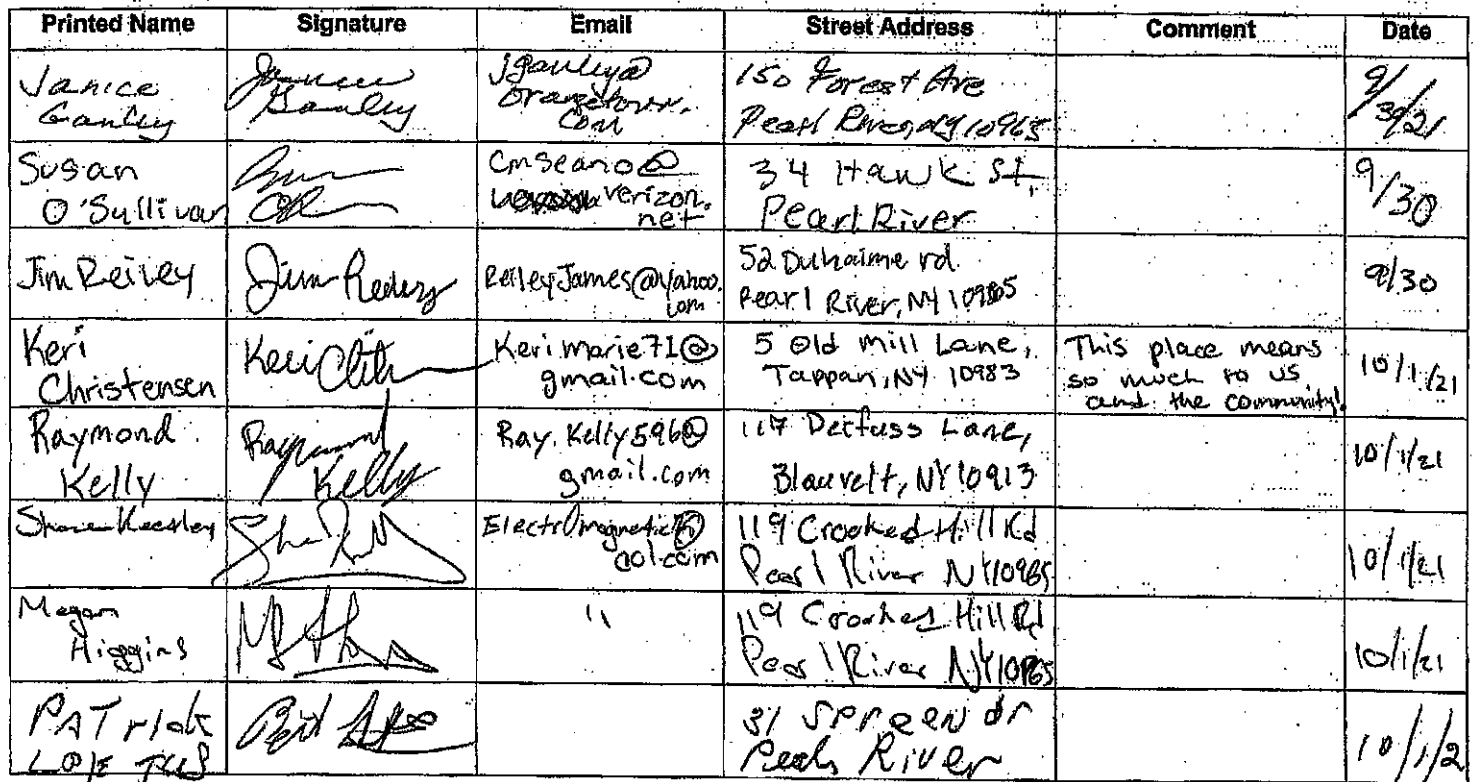 Printed Name Signature Email Street Address Comment Date
Janice
Ganley
Janice
Ganley
jganley@
orangetown.
com
150 Forest Ave
Pearl River, NY 10965
9/30/21
Susan
O'Sullivan
cmseano@
verizon.
net
34 Hawk St,
Pearl River
9/30
Jim Reiley
Jim Reiley
ReileyJames@yahoo.
com
52 Duhaime rd.
Pearl River, NY 10965
9/30
Keri
Christensen
Keri
Keri.marie71@
gmail.com
5 Old Mill Lane,
Tappan, NY 10983
This place means
so much to us
and the community!
10/1/21
Raymond
Kelly
Raymond
Kelly
Ray.Kelly596@
gmail.com
117 Lane,
Blauvelt, NY 10913
10/1/21
aol.com
119 Crooked Hill Rd
Pearl River NY 10965
10/1/21
Megan
Higgins
"
119 Crooked Hill Rd
Pearl River NY 10965
10/1/21
PATrick
31 Spreen dr
Pearl River
10/1/2